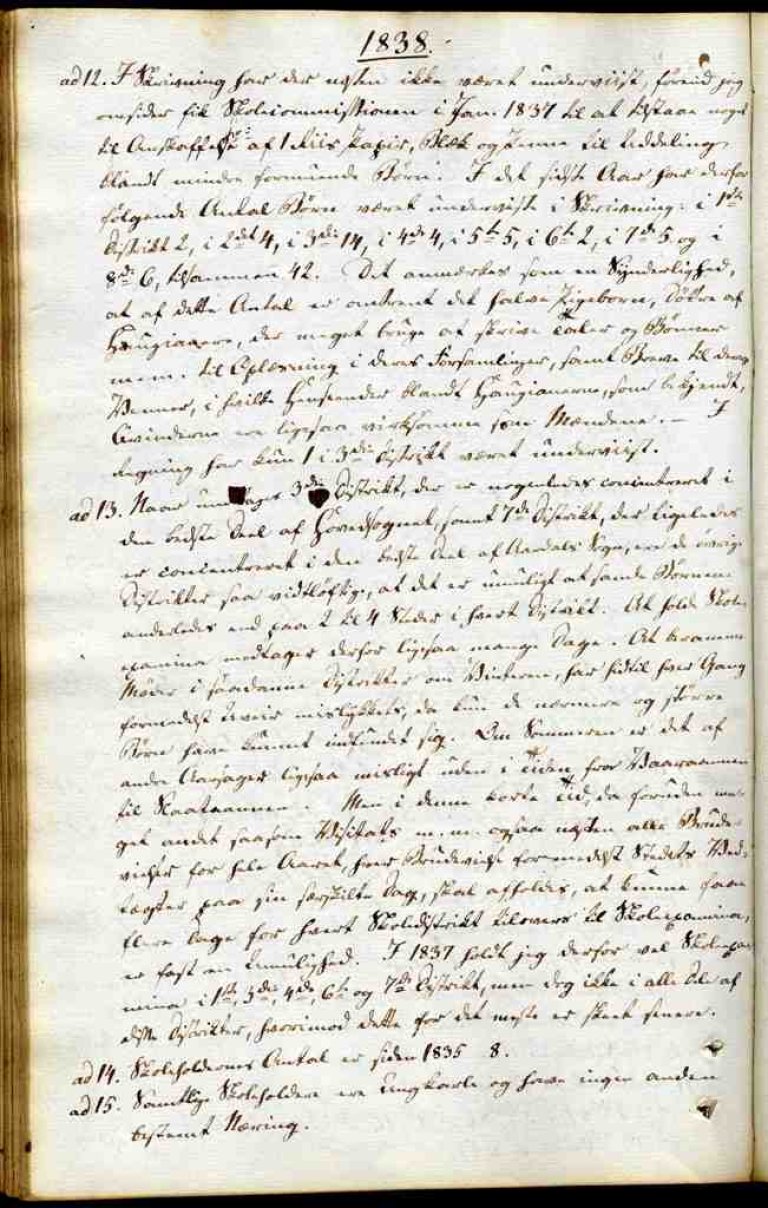 1838.
ad 12. I Skrivning har der næsten ikke været underviist, førend jeg
omsider fik Skolecommissionen i Jan. 1837 til at tilstaae noget
til Anskaffelse af 1 Riis Papir, Blæk og Penne til Uddeling
blandt mindre formuende Børn. I det sidste Aar har derfor
følgende Antal Børn været underviste i Skrivning: i 1ste
Distrikt 2, i 2det 4, i 3die 14, i 4de 4, i 5te 5, i 6te 2, i 7de 5 og i
8de 6, tilsammen 42. Det anmærkes som en Synderlighed,
at af dette Antal er omtrent det halve Pigebørn, Døttre af
Haugianere, der meget bruge at skrive Taler og Bønner
m.m. til Oplæsning i deres Forsamlinger, samt Breve til deres
Venner, i hvilke Henseender blandt Haugianerne, som bekjendt,
Qvinderne ere ligesaa virksomme som Mændene. – I
Regning har kun 1 i 3die Distrikt været underviist.
ad 13. Naar undtages 3die Distrikt, der er nogenledes concentreret i
den bedste Deel af Hovedsognet, samt 7de Distrikt, der ligeledes
er concentreret i den bedste Deel af Aardals Sogn, ere de øvrige
Distrikter saa vidtløftige, at det er umuligt at samle Børnene
anderledes end paa 2 til 4 Steder i hvert Distrikt. At holde Skole-
examina medtager derfor ligesaa mange Dage. At beramme
Møder i saadanne Distrikter om Vinteren, har hidtil hver Gang
formedelst Uveir mislykkets, da kun de nærmere og større
Børn have kunnet indfundet sig. Om Sommeren er det af
andre Aarsager ligesaa misligt uden i Tiden fra Vaaraannen
til Slaataannen. Men i denne korte Tid, da foruden me-
get andet saasom Visitats m.m. ogsaa næsten alle Brude-
vielser for hele Aaret, hver Brudevielse formedelst Stedets Ved-
tægter paa sin særskilte Dag, skal afholdes, at kunne faae
flere Dage for hvert Skoledistrikt tilovers til Skoleexamina,
er fast en Umulighed. I 1837 holdt jeg derfor vel Skoleexa-
mina i 1ste, 3die, 4de, 6te og 7de Distrikt, men dog ikke i alle Dele af
disse Distrikter, hvorimod dette for det meste er skeet senere.
ad 14. Skoleholdernes Antal er siden 1835 8.
ad 15. Samtlige Skoleholdere ere Ungkarle og have ingen anden
bestemt Næring.